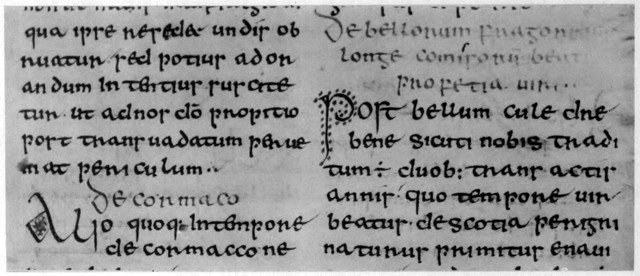 qua ipse resede undis ob
ruatur sed potius ad or
andum intentius suscite
tur. ut ad nos dō propitio
post transuadatum perue
niat periculum..
De cormaco
Alio quoq: in tempore
de cormaccone
De bellorum fragore
longe comisorū beati
profetia uiri..
Post bellum cule dre
bene sicuti nobis tradi
tum ÷ duob: trans actis
annis. quo tempore uir
beatus de scotia perigri
naturus primitus enaui